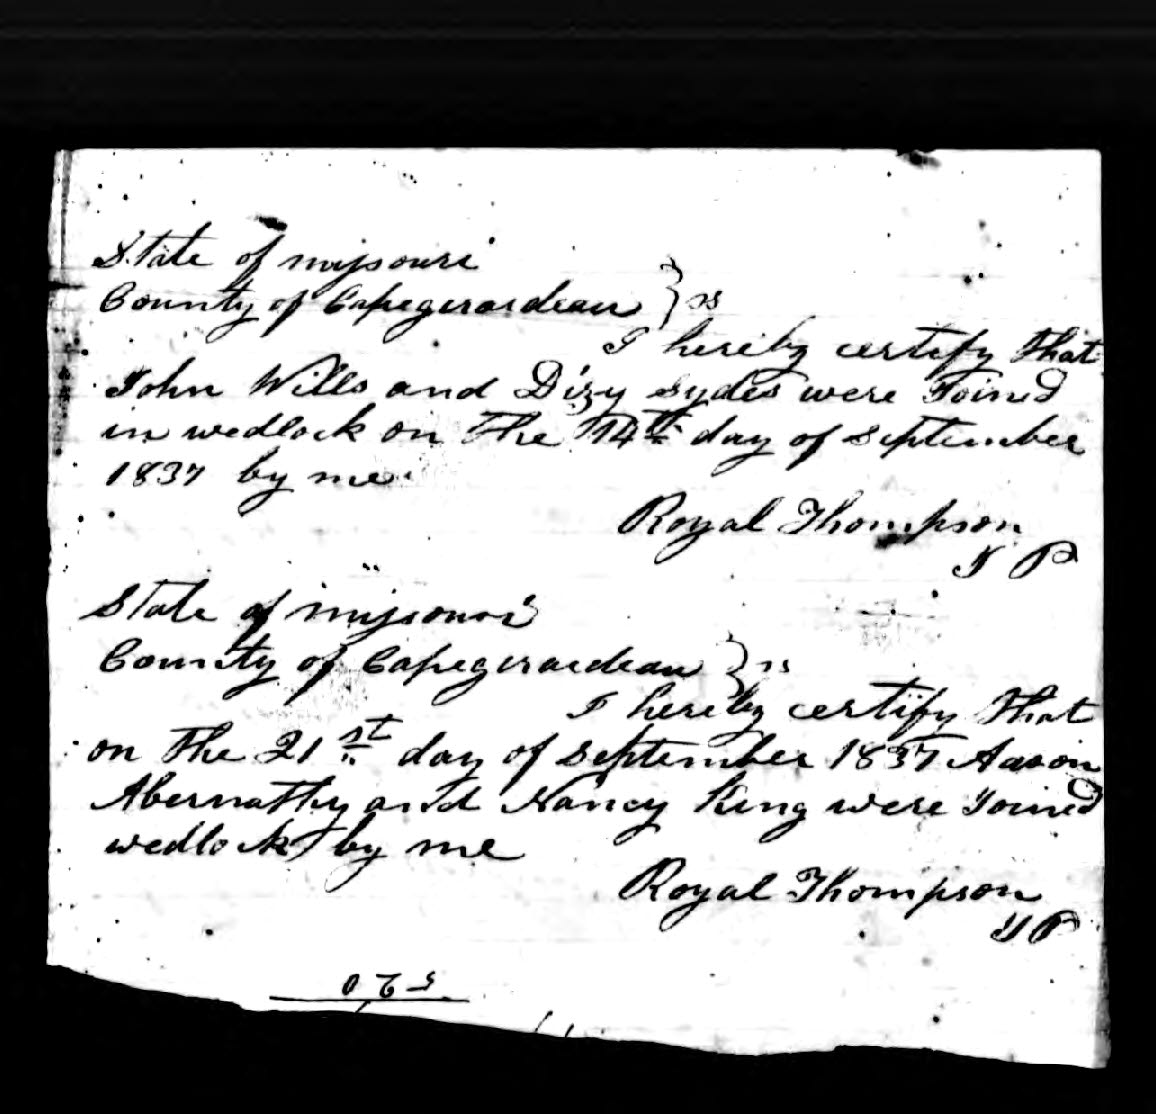 State of missouri
County of Capegirardeau } ss
I hereby certify that
John Wills and Dizy Sydes were Joined
in wedlock on the 14th day of September
1837 by me
Royal Thompson
J P
State of missouri
County of Capegirardeau } ss
I hereby certify that
on the 21st day of September 1837 Aaron
Abernathy and Nancy King were Joined
wedlock by me
Royal Thompson
J P